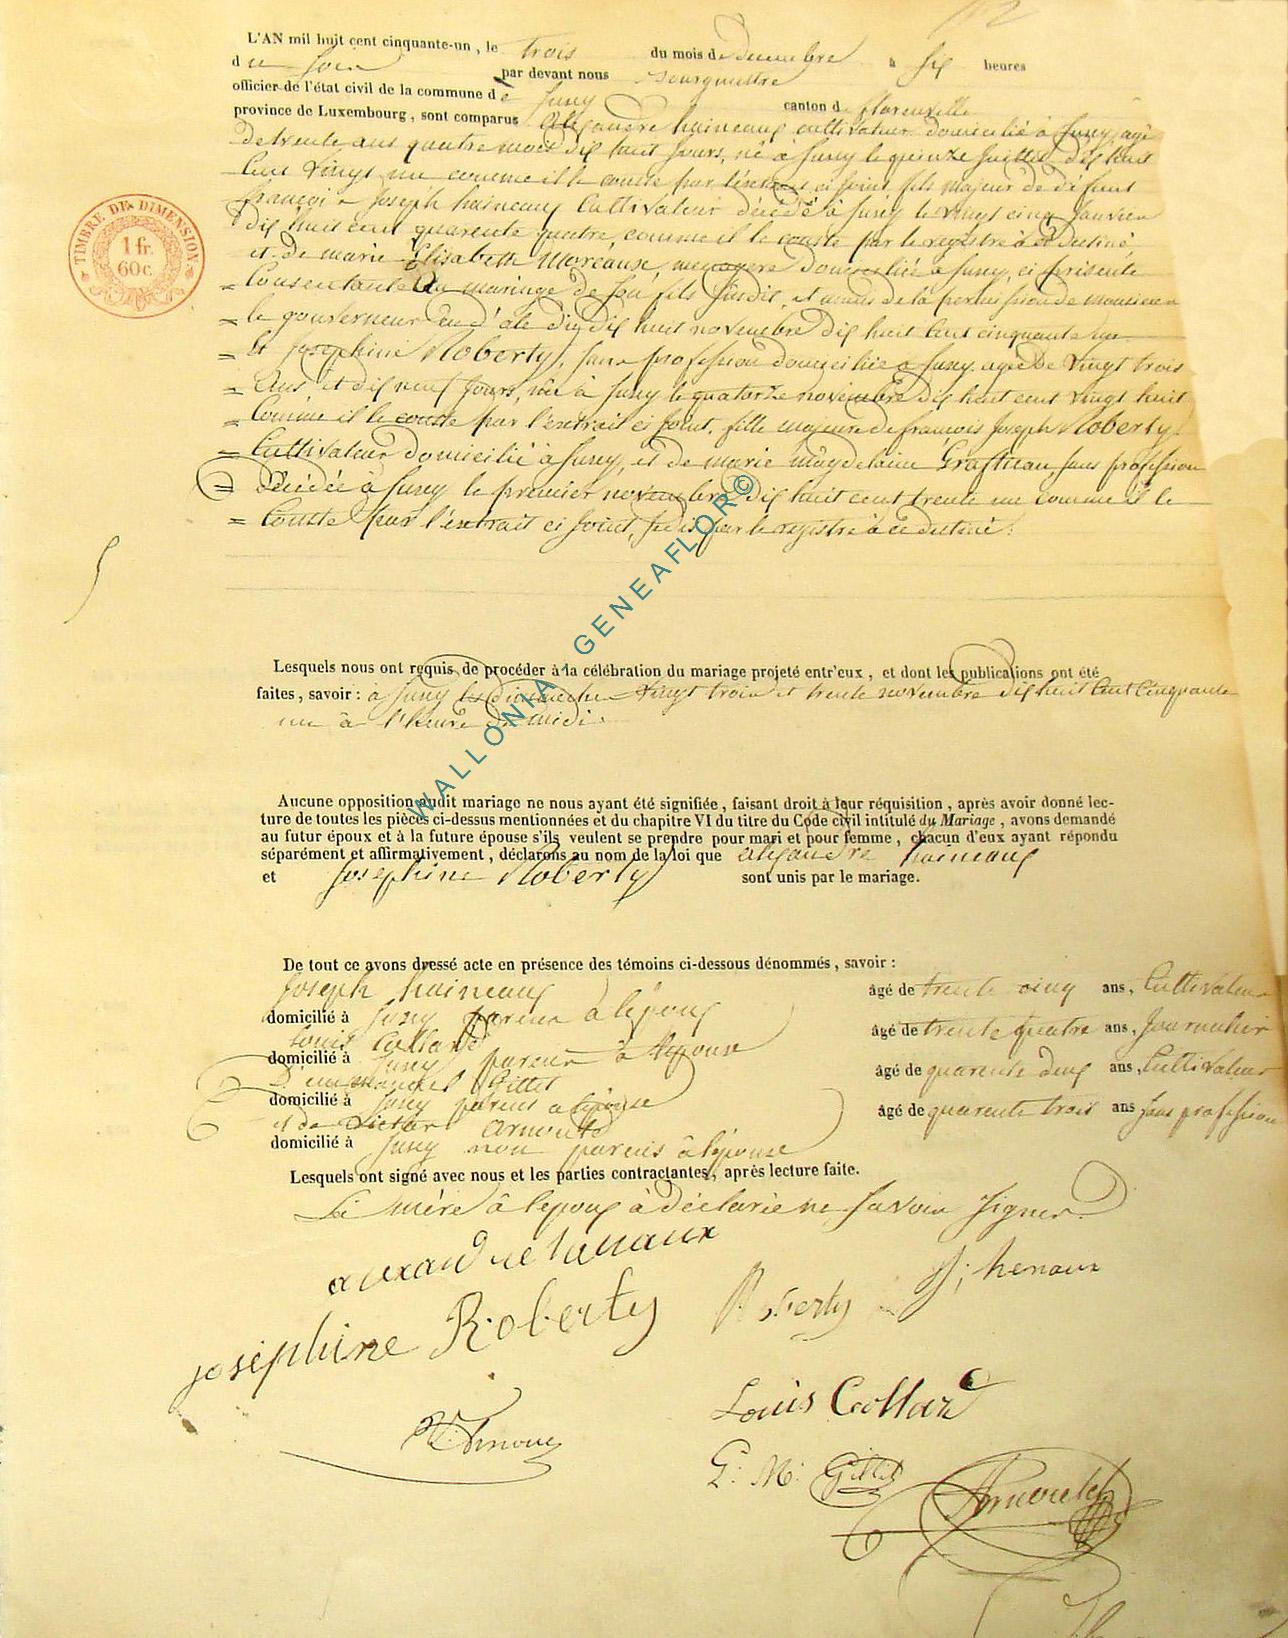 L'AN mil huit cent cinquante-un, le trois du mois de decembre à six heures
du soir par devant nous bourguestre
officier de l'état civil de la commune de Suny canton de florenville
province de Luxembourg, sont comparus alexandre haineaux cultivateur domicilié à Suny, agé
de trente ans quatre mois dix huit Jours, né à Suny le quinze Juillet dix huit
Cent Vingt un comme il le conste par l'extrait ci Joint, fils majeur de défunt
françois Joséph haineaux Cultivateur décédé à Suny le Vingt cinq Janvier
dix huit cent quarente quatre, comme il le conste par le registre à ce destiné
et de marie Elisabeth Moreaux, menagere domiciliée à Suny, ci présente
Consentante au mariage de son fils Susdit, et de la permission de monsieur
le gouverneur en d'ate dix huit novembre dix huit Cent cinquante un
et Joséphine Roberty, Sans profession domiciliée à Suny agée de Vingt trois
Ans et dix neuf Jours, née à Suny le quatorze novembre dix huit cent vingt huit
Comme il le conste par l'extrait ci Joint, fille majeure de françois Joseph Roberty
Cultivateur domicilié à Suny, et de marie magdelaine Sans profession
Décédée à Suny le premier novembre dix huit cent trente un comme il le
Conste par l'extrait ci Joint, par le registre à ce destiné.
TIMBRE DE DIMENSION.
1 fr.
60c.
Lesquels nous ont requis de procéder à la célébration du mariage projeté entr'eux, et dont les publications ont été
faites, savoir : à Suny les dimanche Vingt trois et trente novembre dix huit Cent Cinquante
un à l'heure de midi.
Aucune opposition audit mariage ne nous ayant été signifiée, faisant droit à leur réquisition, après avoir donné lec-
ture de toutes les pièces ci-dessus mentionnées et du chapitre VI du titre du Code civil intitulé du Mariage, avons demandé
au futur époux et à la future épouse s'ils veulent se prendre pour mari et pour femme, chacun d'eux ayant répondu
séparément et affirmativement, déclarons au nom de la loi que alexandre haineaux
et Joséphine Roberty sont unis par le mariage.
De tout ce avons dressé acte en présence des témoins ci-dessous dénommés, savoir :
Joseph haineaux âgé de trente cinq ans, Cultivateur
domicilié à Suny parens à l'époux
Louis Collard âgé de trente quatre ans, Journalier
domicilié à Suny parens à l'épouse
D'emmanuel Gillet âgé de quarente deux ans, Cultivateur
domicilié à Suny parens à l'épouse
et de Arnould âgé de quarente trois ans Sans profession
domicilié à Suny non parens à l'épouse
Lesquels ont signé avec nous et les parties contractantes, après lecture faite.
La mère à l'epoux à déclarée ne Savoir Signer
alexandre hainaux
J; henaux
Joséphine Roberty Roberty
Louis Collard
G. M. Gillet
Arnould
WALLONIA GENEAFLOR©